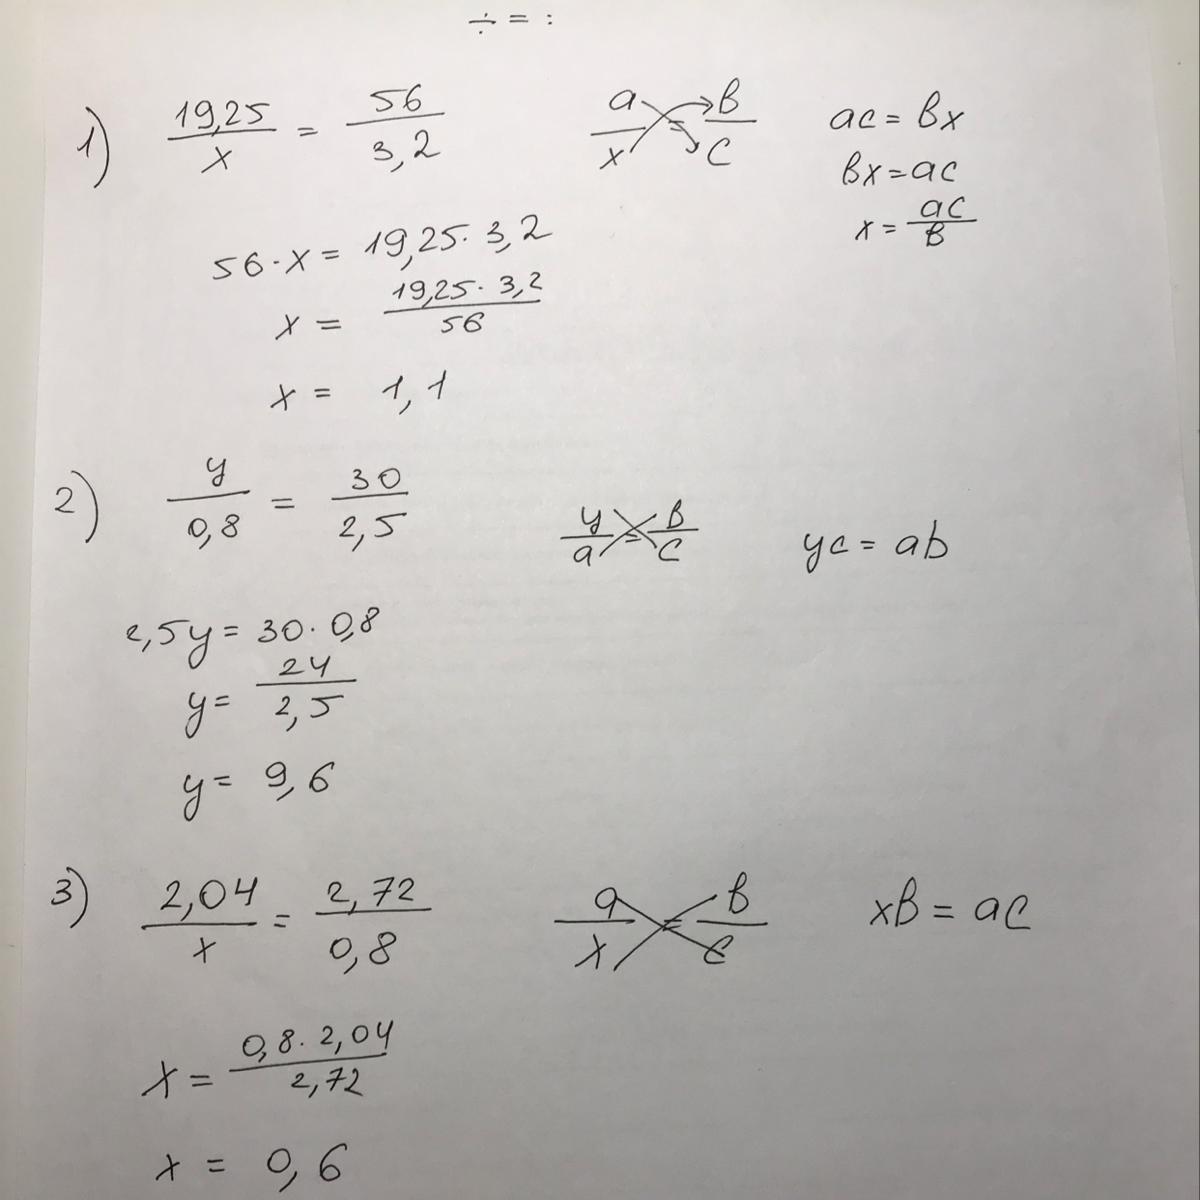 ÷ = :
1) 19,25/x = 56/3,2 a/x = b/c ac = bx
bx = ac
x = ac/b
56 · x = 19,25 · 3,2
x = 19,25 · 3,2/56
x = 1,1
2) y/0,8 = 30/2,5 y/a = b/c yc = ab
2,5y = 30 · 0,8
y = 24/2,5
y = 9,6
3) 2,04/x = 2,72/0,8 a/x = b/c xb = ac
x = 0,8 · 2,04/2,72
x = 0,6